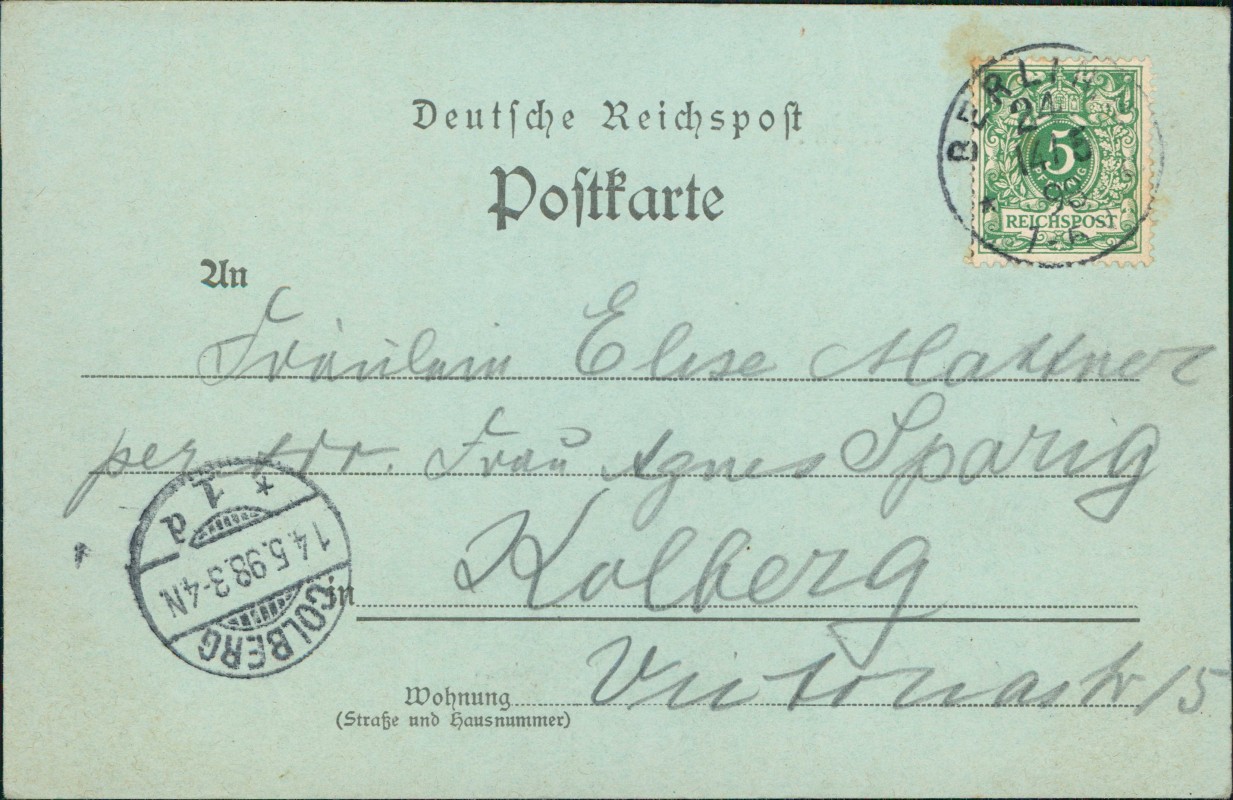 Deutsche Reichspost
Postkarte
BERLIN
24
14/5
98
7-8
5
PFENNIG
REICHSPOST
An
Fräulein Elise Mattner
per Adr. Frau Agnes Sparig
in Kolberg
Wohnung Victoriastr 15
(Straße und Hausnummer)
COLBERG
14.5.98.3-4N
* 1 d